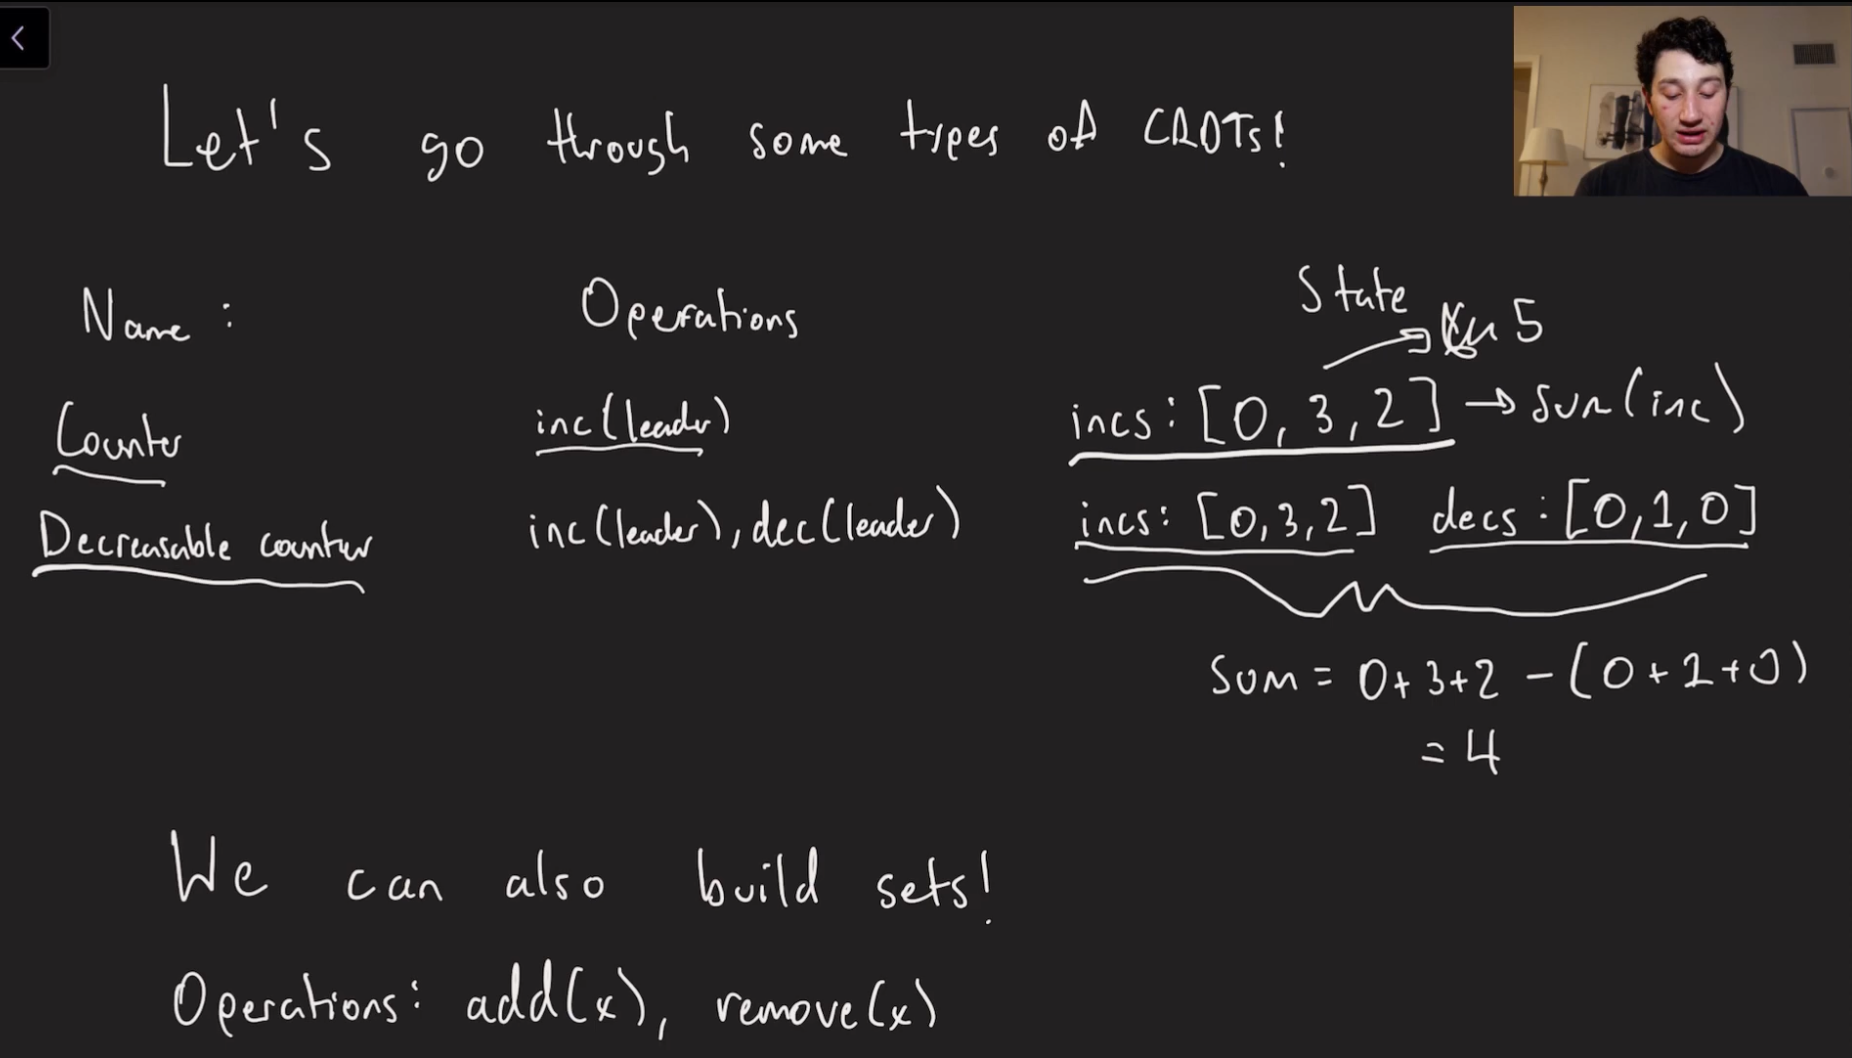 Let's go through some types of CRDTs!
Name : Operations State
5
Counter inc(leader) incs: [0, 3, 2] → sum(inc)
Decreasable counter inc(leader), dec(leader) incs: [0,3,2] decs: [0,1,0]
Sum = 0+3+2 - (0+1+0)
= 4
We can also build sets!
Operations: add(x), remove(x)